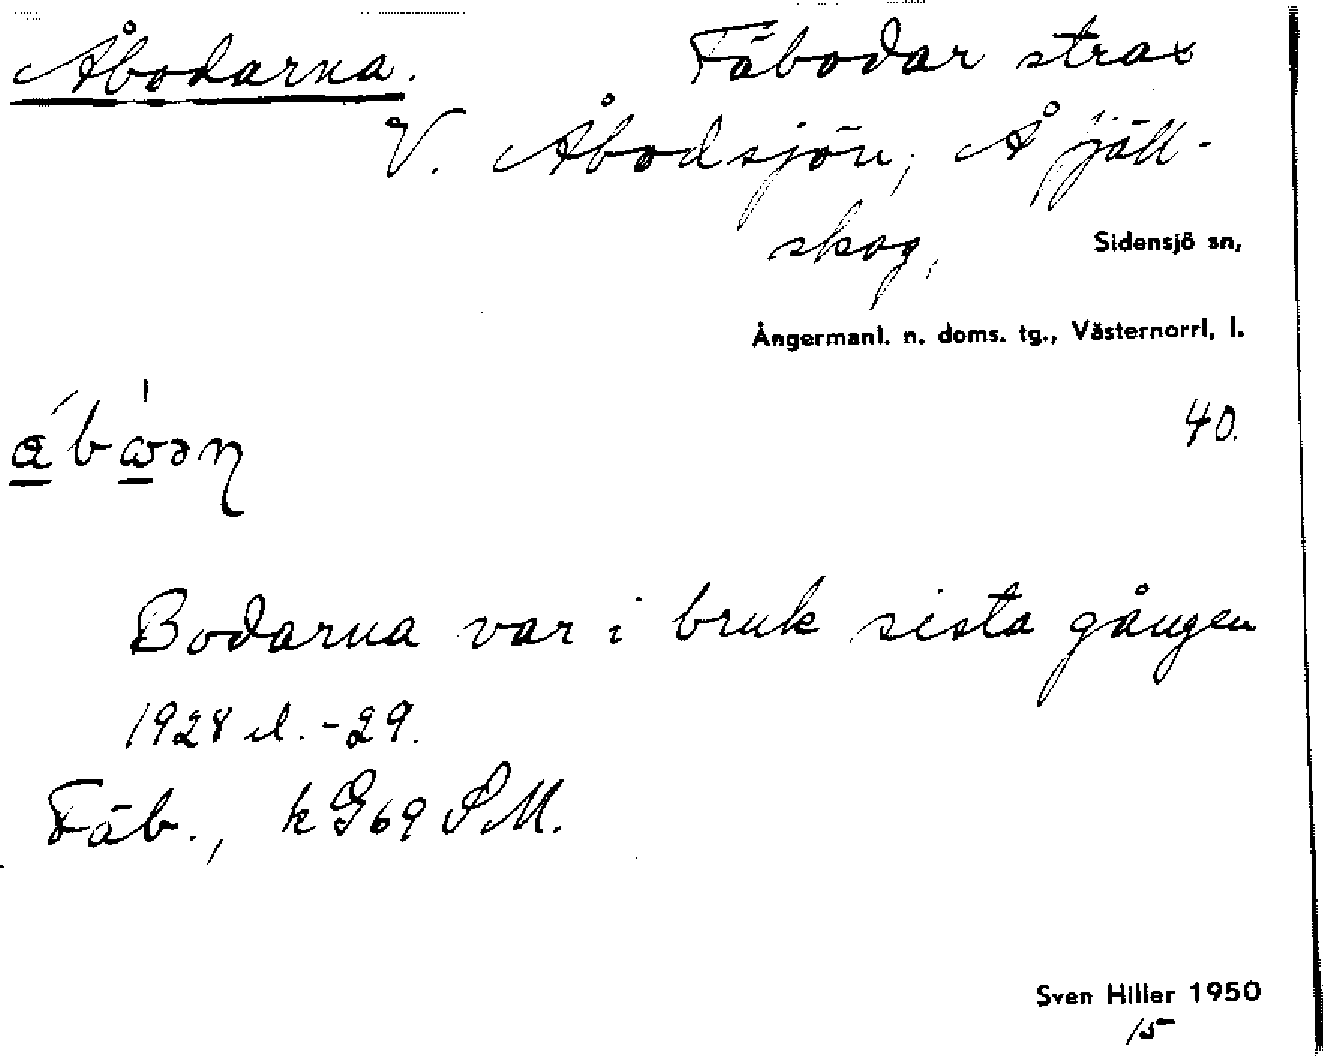 Åbodarna. Fäbodar strax
V. Åbodsjön, Å fjäll-
skog, Sidensjö sn,
Ångermanl. n. doms. tg., Västernorrl. l.
40.
Bodarna var i bruk sista gången
1928 el. -29.
Fäb., k G69 SM.
Sven Hiller 1950
15